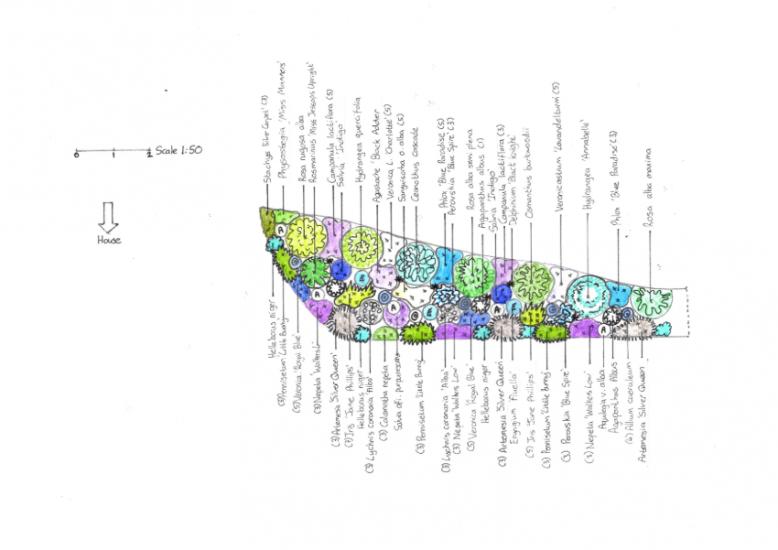 0 1 2 Scale 1:50
House
Stachys 'Silver Carpet' (7)
Physostegia 'Miss Manners'
Rosa rugosa alba
Rosmarinus 'Miss Jessops Upright'
Campanula lactiflora (5)
Salvia 'Indigo'
Hydrangea quercifolia
Agastache 'Black Adder'
Veronica L. Charlotte (5)
Sanguisorba o. alba (5)
Ceanothus cascade
Phlox 'Blue Paradise' (5)
Perovskia 'Blue Spire' (3)
Rosa alba semi plena
Agapanthus albus
Salvia 'Indigo'
Campanula lactiflora (3)
Delphinium 'Black Knight'
Osmanthus burkwoodii
Veronicastrum 'Lavendelturm' (5)
Hydrangea 'Annabelle'
Phlox 'Blue Paradise' (3)
Rosa alba maxima
Helleborus niger
Pennisetum 'Little Bunny'
Veronica 'Royal Blue'
Nepeta 'Walkers L'
(3) Artemesia 'Silver Queen'
Iris 'Jane Phillips'
Helleborus niger
(3) Lychnis coronaria 'Alba'
(3) Calamintha nepeta
Salvia off. purpurascens
(3) Pennisetum 'Little Bunny'
(3) Lychnis coronaria 'Alba'
(3) Nepeta 'Walkers Low'
(5) Veronica 'Royal Blue'
Helleborus niger
(3) Artemesia 'Silver Queen'
(5) Iris 'Jane Phillips'
(3) Pennisetum 'Little Bunny'
(3) Perovskia 'Blue Spire'
(3) Nepeta 'Walkers Low'
Aquilegia v. alba
Agapanthus Albus
(6) Allium caeruleum
Artemesia 'Silver Queen'